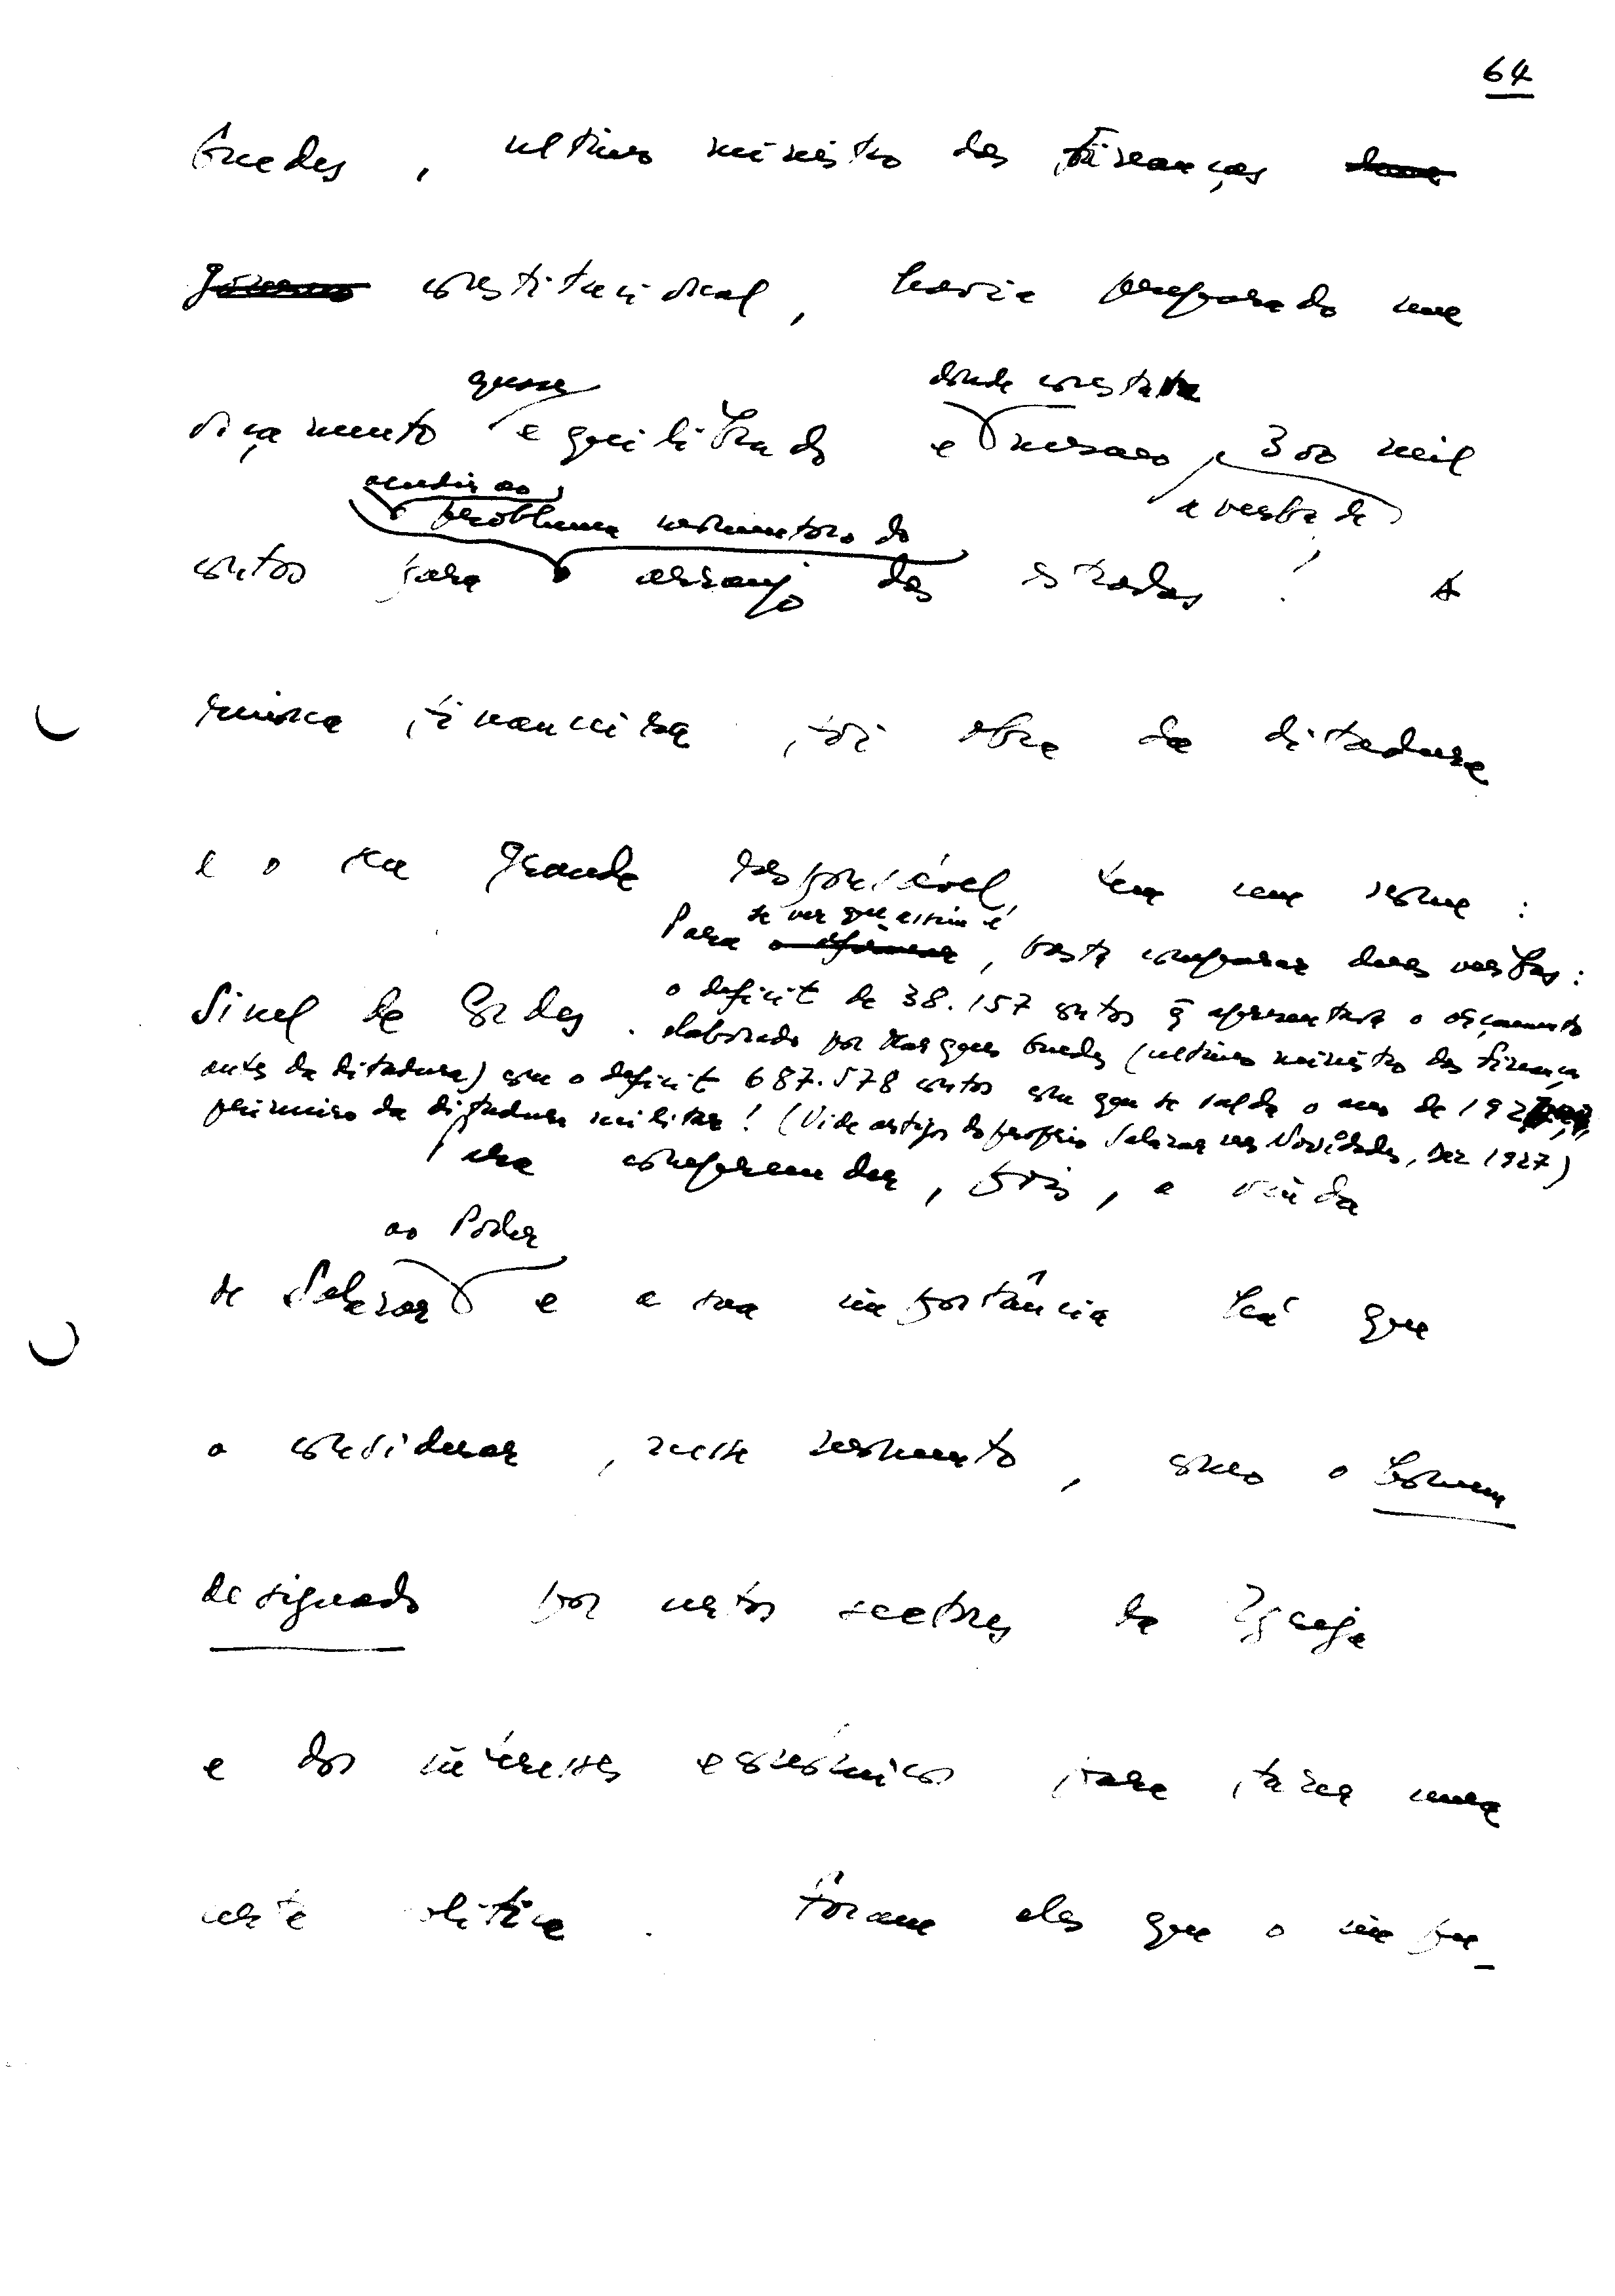 64
Guedes, ultimo ministro das Finanças
constitucional, havia preparado um
quase donde constava
orçamento equilibrado e mesmo 300 mil
acudir ao a verba de
problema momentoso do
contos para arranjo das estradas! A
ruina financeira foi obra da ditadura
e o seu grande responsável tem um nome:
se ver que assim é
Para, basta comparar duas verbas:
Sinel de Cordes. o deficit de 38.157 contos q̃ apresentava o orçamento
elaborado por Marques Guedes (ultimo ministro das Finanças
antes da ditadura) com o deficit 687.578 contos com que se salda o ano de
primeiro da ditadura militar! (Vide artigo do próprio Salazar nas Novidades, Dez 1927)
Para compreender, pois, a vinda
ao Poder
de Salazar e a sua importância há que
o considerar, neste momento, como o homem
designado por certos sectores da Igreja
e dos interesses económicos para fazer uma
certa política. Foram eles que o impu-